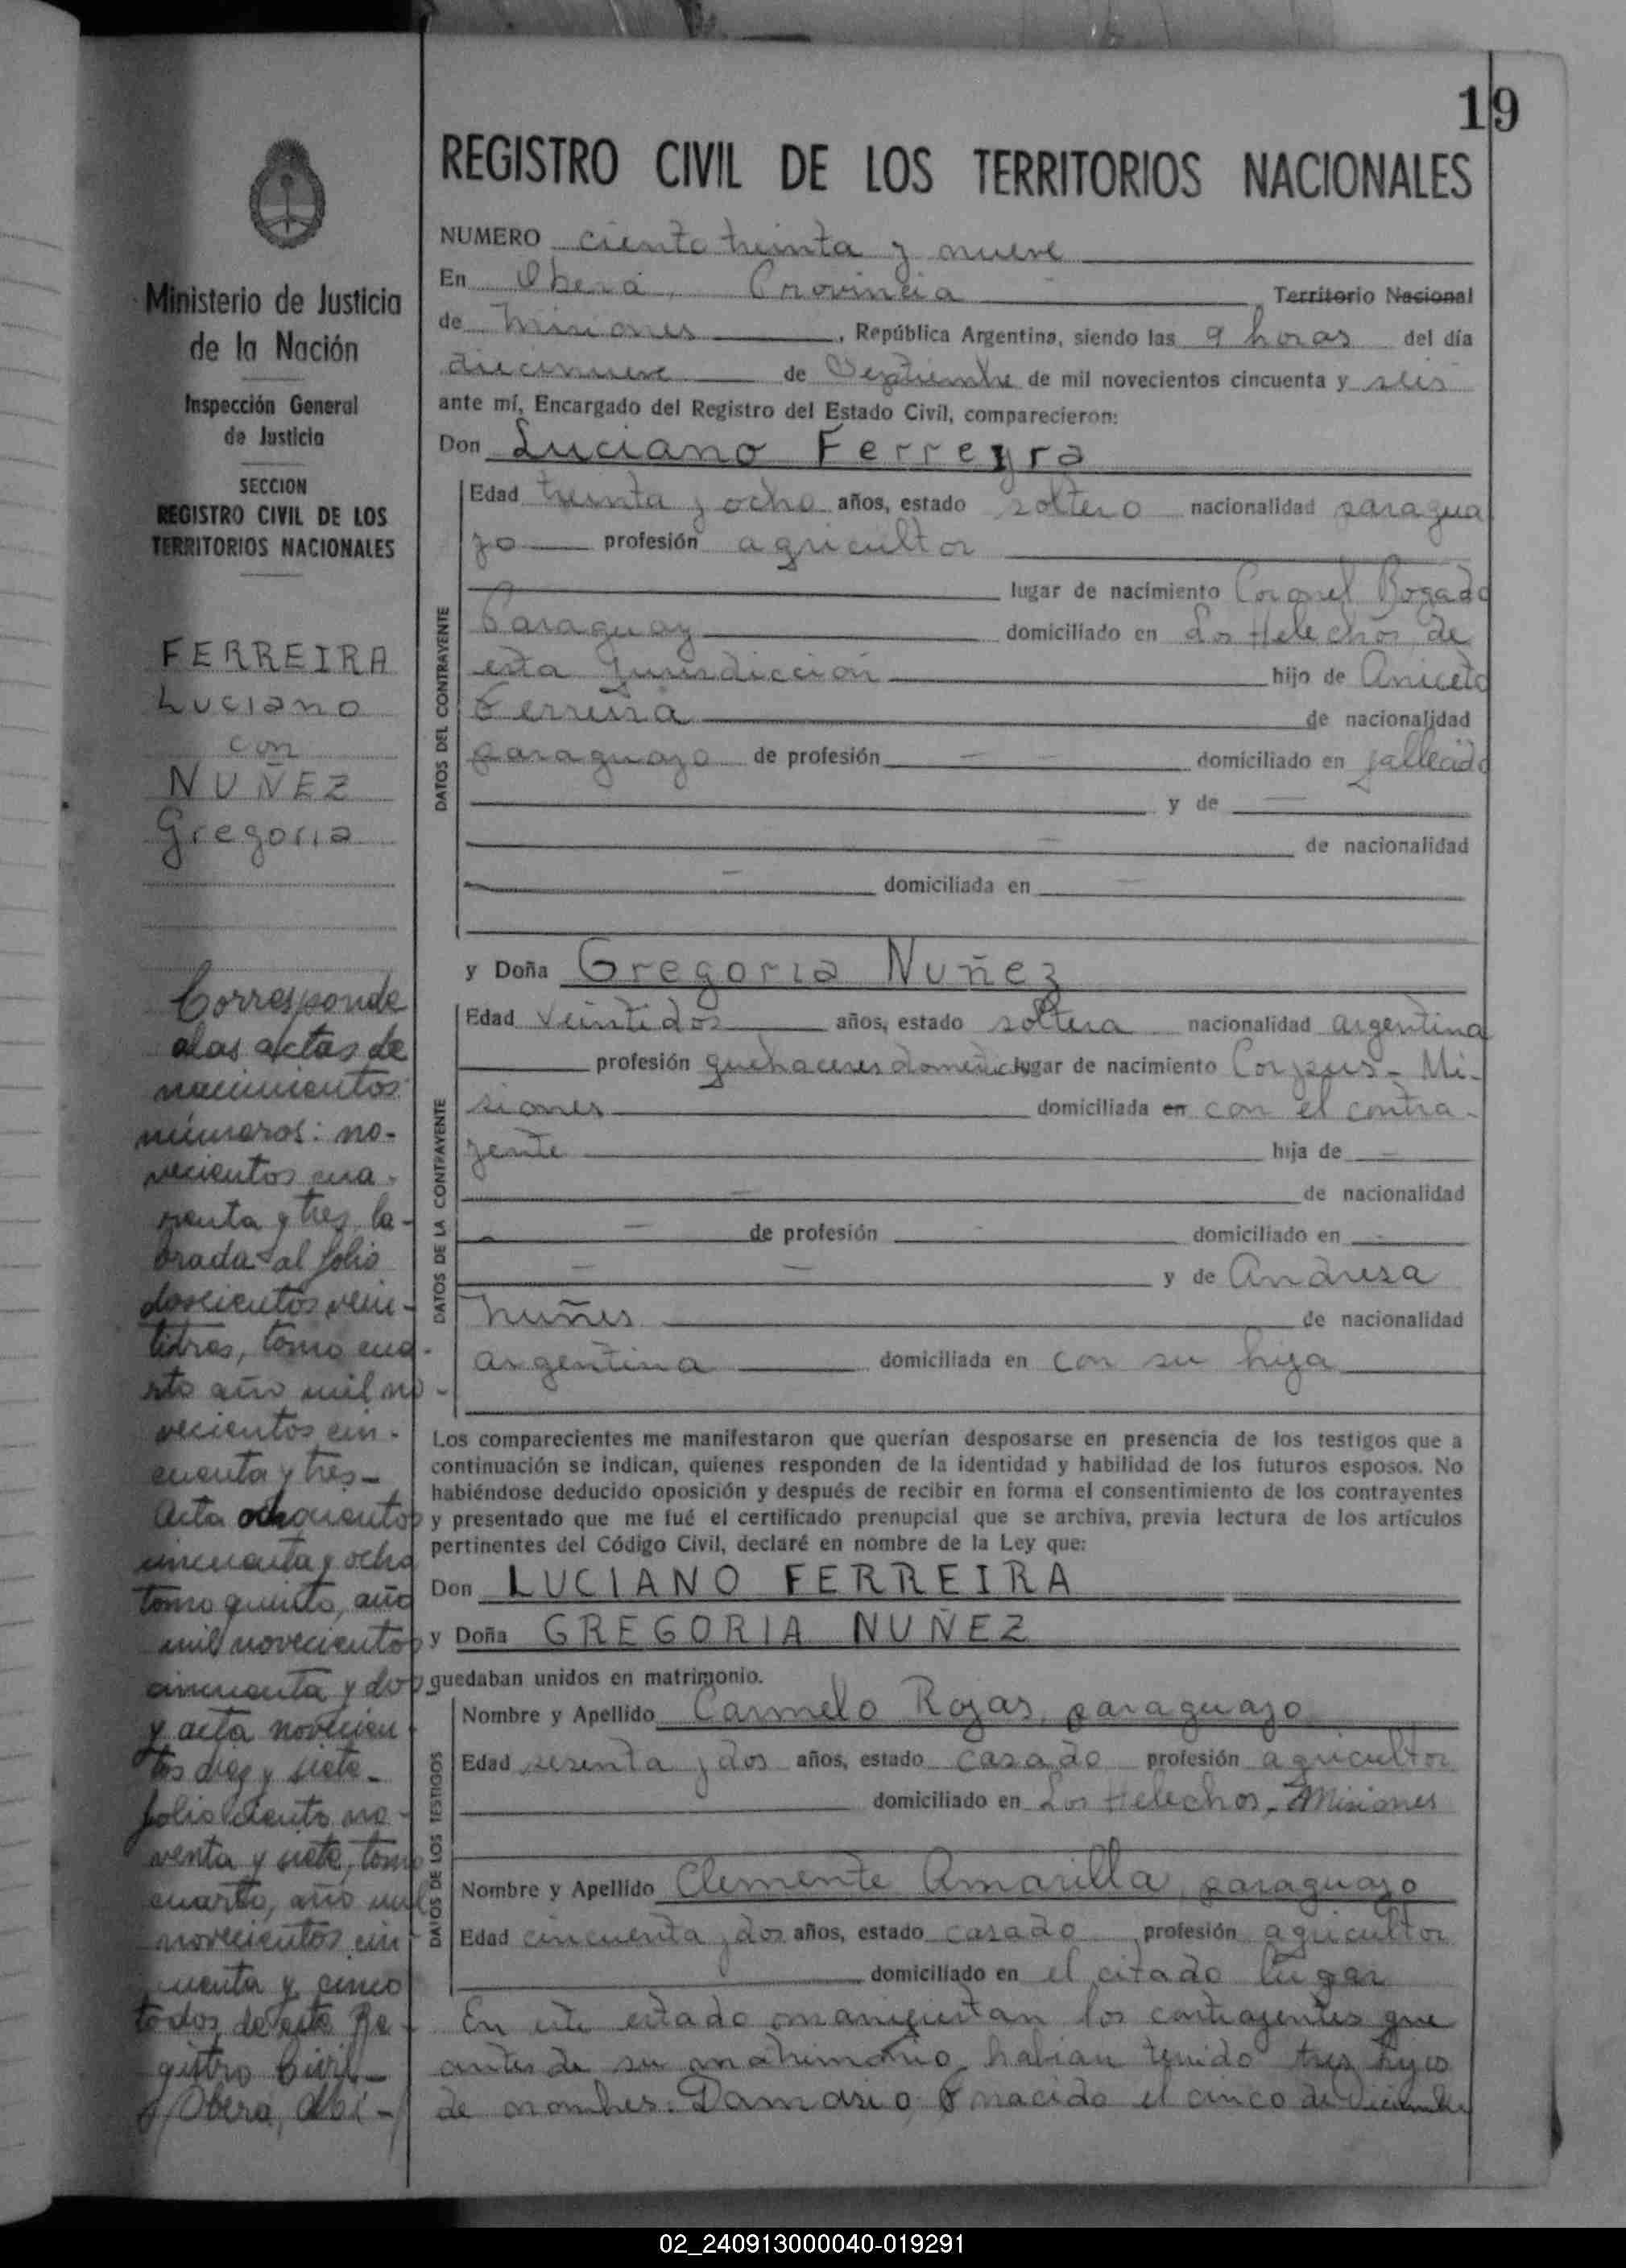 19
REGISTRO CIVIL DE LOS TERRITORIOS NACIONALES
Ministerio de Justicia
de la Nación
Inspección General
de Justicia
SECCION
REGISTRO CIVIL DE LOS
TERRITORIOS NACIONALES
FERREIRA
Luciano
con
NUÑEZ
Gregoria
Corresponde
a las actas de
nacimientos
números: no-
vecientos cua-
renta y tres la-
brada al folio
doscientos vein-
titres, tomo cua-
rto año mil no-
vecientos cin-
cuenta y tres-
Acta ochocientos
cincuenta y ocho
tomo quinto, año
mil novecientos
cincuenta y dos
y acta novecien
tos diez y siete-
folio ciento no-
venta y siete, tomo
cuarto, año mil
novecientos cin
cuenta y cinco
todos de este Re-
gistro Civil-
Oberá, Mi-
NUMERO ciento treinta y nueve
En Oberá, Provincia Territorio Nacional
de Misiones, República Argentina, siendo las 9 horas del día
diecinueve de Septiembre de mil novecientos cincuenta y seis
ante mí, Encargado del Registro del Estado Civil, comparecieron:
Don Luciano Ferreyra
DATOS DEL CONTRAYENTE
Edad treinta y ocho años, estado soltero nacionalidad paragua
yo profesión agricultor
lugar de nacimiento Coronel Bogado
Paraguay domiciliado en Los Helechos, de
esta Jurisdicción hijo de Aniceto
Ferreira de nacionalidad
paraguayo de profesión — — domiciliado en fallecido
y de —
— de nacionalidad
— domiciliada en —
y Doña Gregoria Nuñez
DATOS DE LA CONTRAYENTE
Edad veintidos años, estado soltera nacionalidad argentina
profesión quehaceres domestic lugar de nacimiento Corpus - Mi-
siones domiciliada en con el contra-
yente hija de —
— de nacionalidad
— de profesión - domiciliado en -
— — y de Andresa
Nuñes de nacionalidad
argentina domiciliada en con su hija
Los comparecientes me manifestaron que querían desposarse en presencia de los testigos que a
continuación se indican, quienes responden de la identidad y habilidad de los futuros esposos. No
habiéndose deducido oposición y después de recibir en forma el consentimiento de los contrayentes
y presentado que me fué el certificado prenupcial que se archiva, previa lectura de los artículos
pertinentes del Código Civil, declaré en nombre de la Ley que:
Don LUCIANO FERREIRA
y Doña GREGORIA NUÑEZ
quedaban unidos en matrimonio.
DATOS DE LOS TESTIGOS
Nombre y Apellido Carmelo Rojas, paraguayo
Edad sesenta y dos años, estado casado profesión agricultor
domiciliado en Los Helechos, Misiones
Nombre y Apellido Clemente Amarilla, paraguayo
Edad cincuenta y dos años, estado casado profesión agricultor
domiciliado en el citado lugar
En este estado manifiestan los contrayentes que
antes de su matrimonio, habian tenido tres hijos
de nombres: Damasio nacido el cinco de Diciembre
02_240913000040-019291